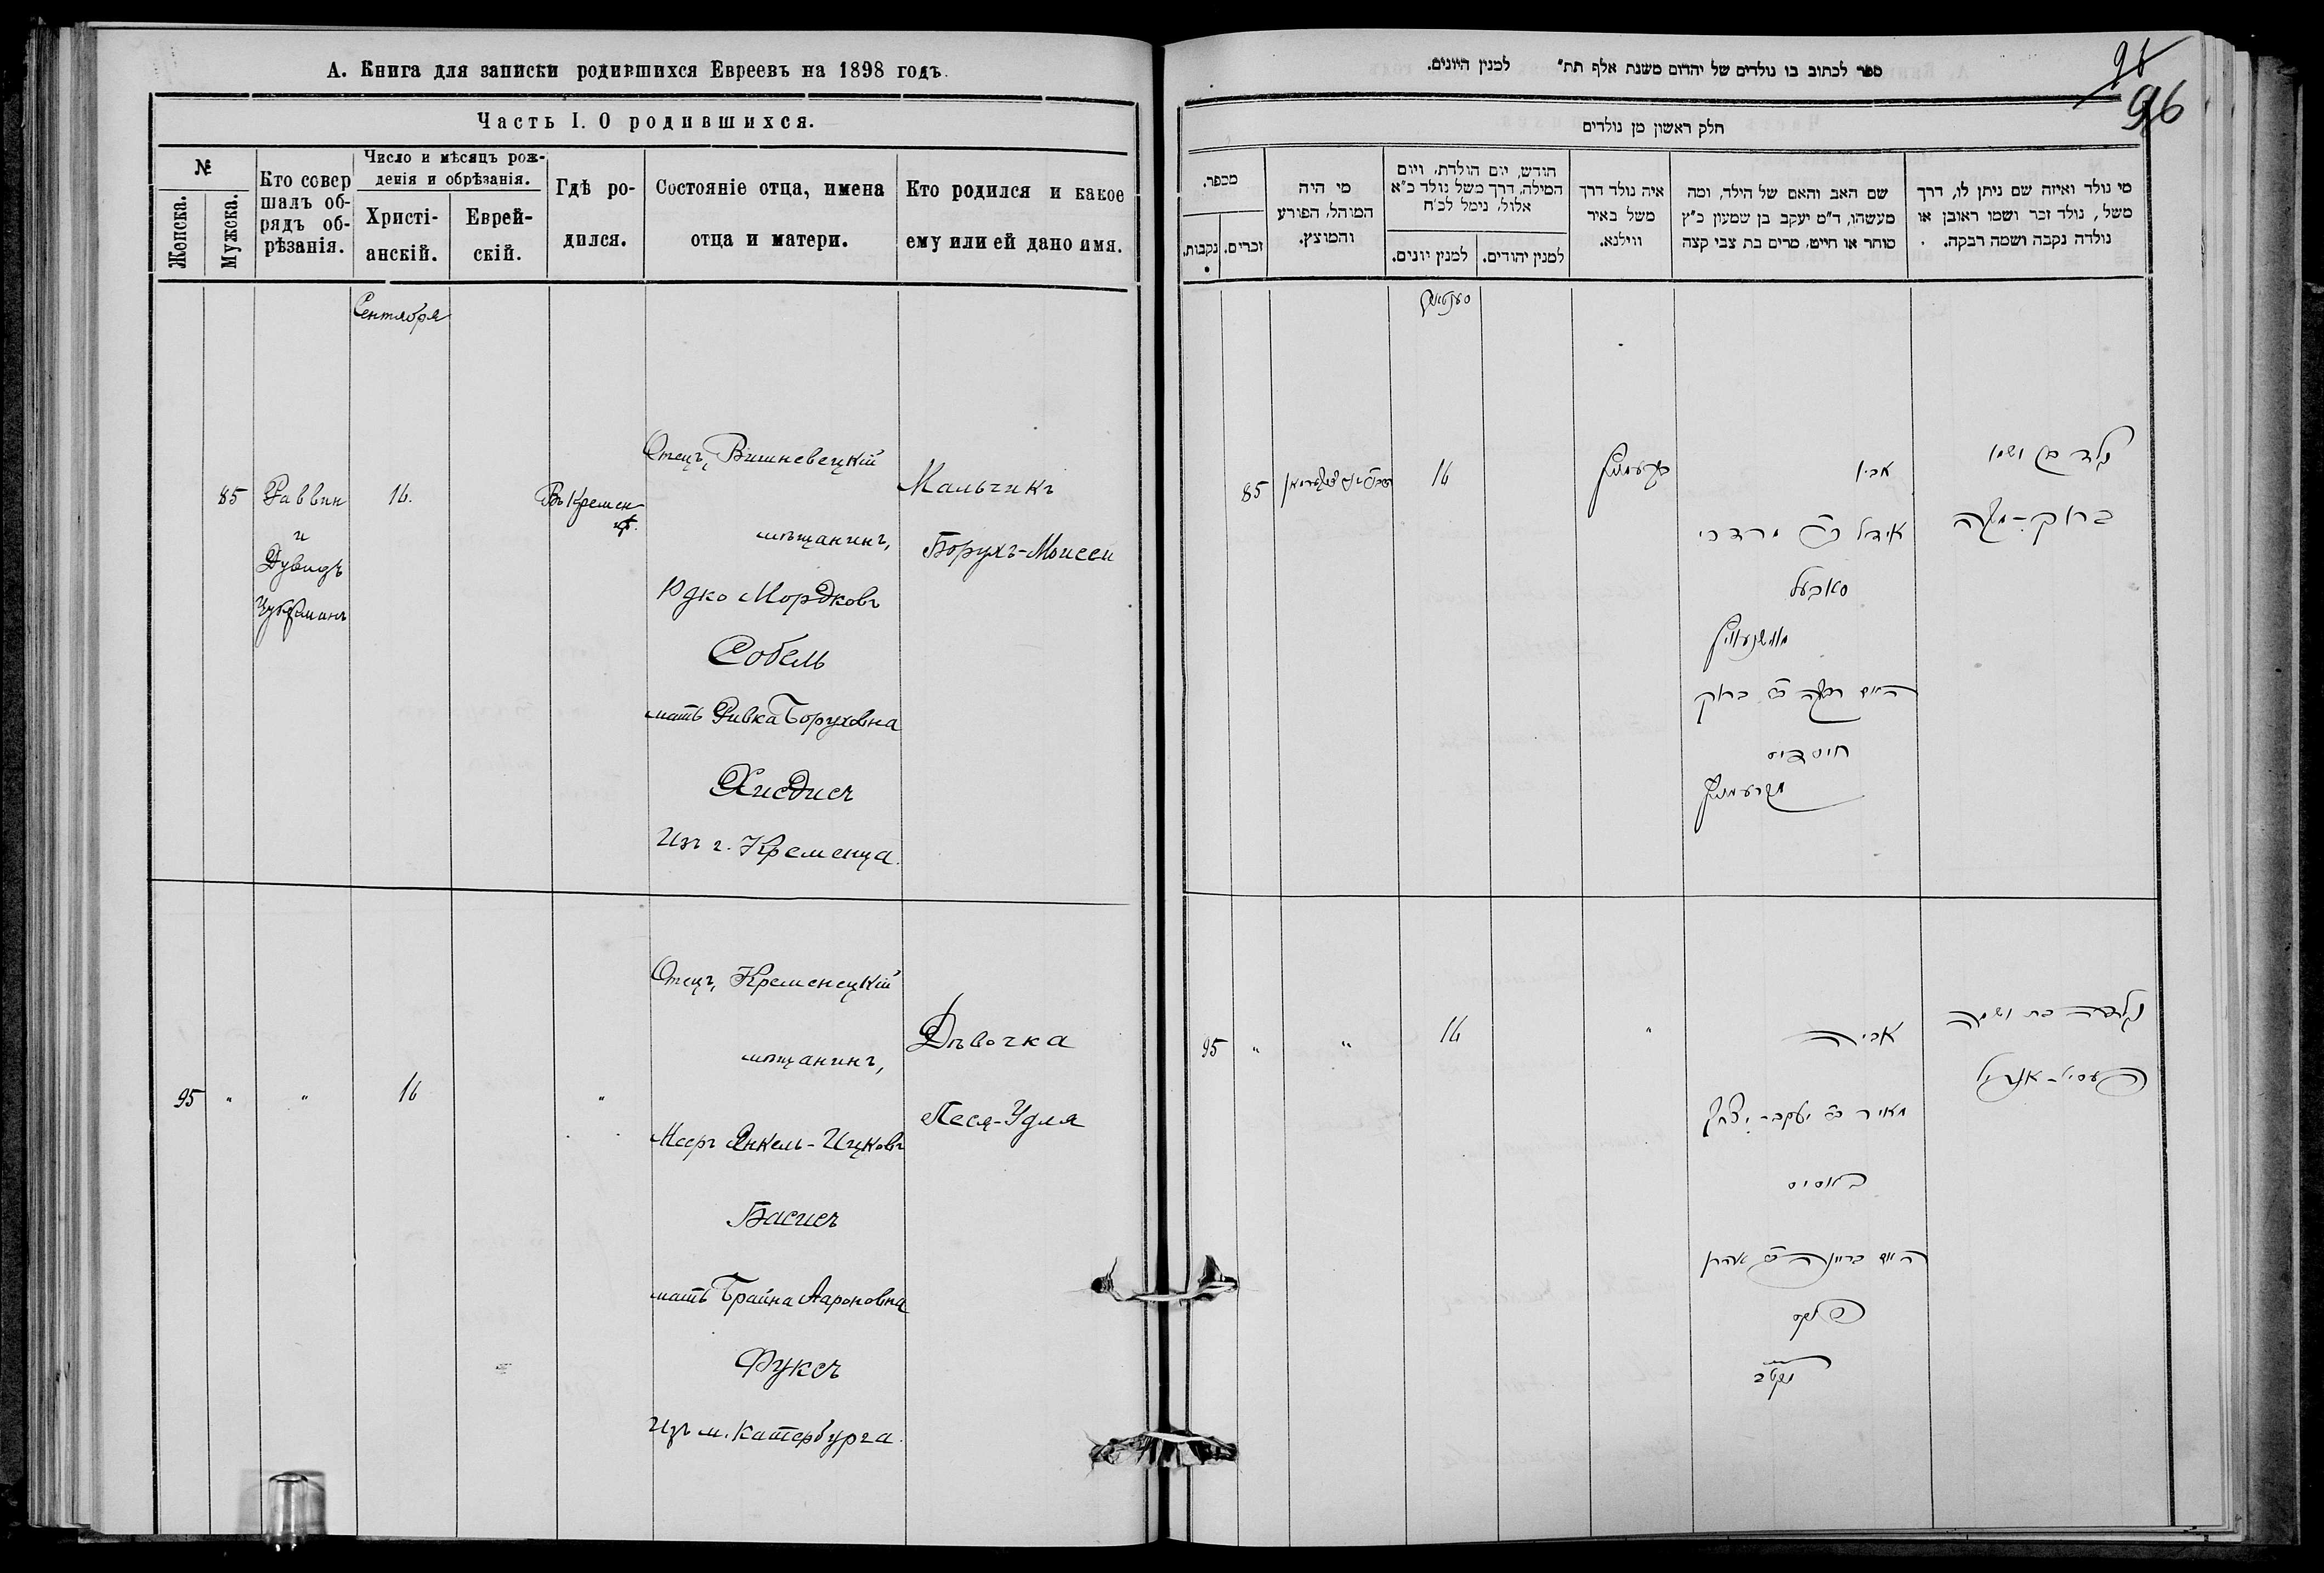 А. Книга для записки родившихся Евреевъ на 1898 годъ.
Часть I. О родившихся.
№
Женска.
Мужска.
Кто совер
шалъ об-
рядъ об-
рѣзанія.
Число и мѣсяцъ рож-
денія и обрѣзанія.
Христі-
анскій.
Еврей-
скій.
Гдѣ ро-
дился.
Состояніе отца, имена
отца и матери.
Кто родился и какое
ему или ей дано имя.
Сентября
85
Раввин
и
Дувидъ
16.
Въ Кремен
цѣ.
Отецъ, Вишневецкій
мѣщанинъ,
Юдко Мордковъ
Собель
мать Ривка Боруховна
Хисдисъ
Изъ г. Кременца.
Мальчикъ
Борухъ-Моисей
95 " "
16
"
Отецъ, Кременецкій
мѣщанинъ,
Мееръ Янкель-Ицковъ
Басисъ
мать Брайна Аароновна
Фуксъ
Изъ м. Катербурга.
Дѣвочка
Песя-Удля
96
ספר לכתוב בו נולדים של יהדום משנת אלף תת״ למנין היונים.
חלק ראשון מן נולדים
מי נולד ואיזה שם ניתן לו, דרך
משל, נולד זכר ושמו ראובן או
נולדה נקבה ושמה רבקה.
שם האב והאם של הילד, ומה
מעשהו, ד״מ יעקב בן שמעון כ״ץ
סוחר או חייט, מרים בת צבי קצה
איה נולד דרך
משל באיר
ווילנא.
חודש, יום הולדת, ויום
המילה, דרך משל נולד כ״א
אלול, נימל לכ״ח
למנין יהודים.
למנין יונים.
מי היה
המוהל, הפורע
והמוצץ.
מספר.
זכרים.
נקבות.
נולד בן ושמו
ברוך-משה
אביו
אידל ב״ר מרדכי
סאבעל
מווישנעוויץ
רבקה ב״ר ברוך
חיסדיס
מקרעמניץ
בקרעמניץ
16
85
נולדה בת ושמה
פעסיל-אודיל
אביה
מאיר ב״ר יעקב-יצחק
באסיס
בריינה ב״ר אהרן
פוקס
"
16
"
"
95